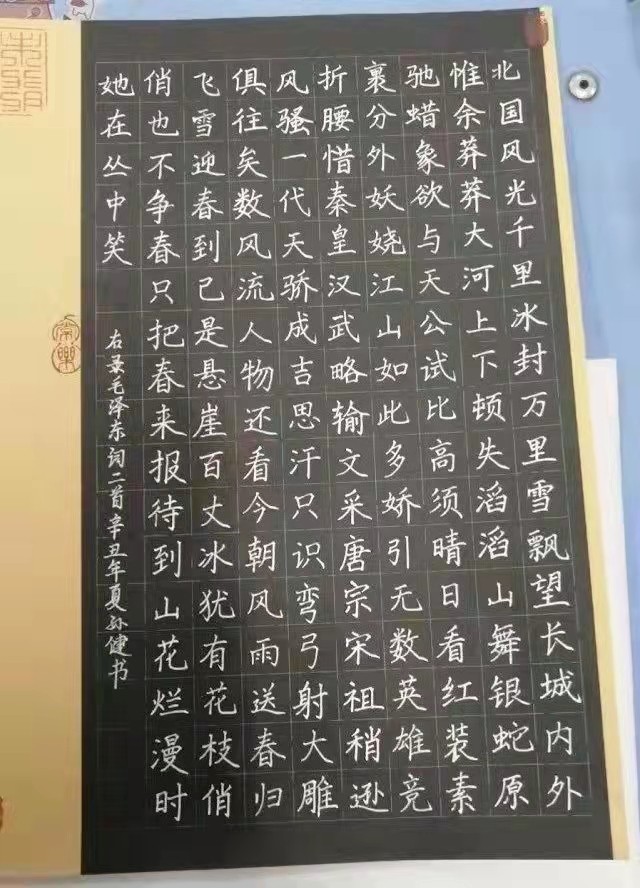 北国风光千里冰封万里雪飘望长城内外
惟余莽莽大河上下顿失滔滔山舞银蛇原
驰蜡象欲与天公试比高须晴日看红装素
裹分外妖娆江山如此多娇引无数英雄竞
折腰惜秦皇汉武略输文采唐宗宋祖稍逊
风骚一代天骄成吉思汗只识弯弓射大雕
俱往矣数风流人物还看今朝风雨送春归
飞雪迎春到己是悬崖百丈冰犹有花枝俏
俏也不争春只把春来报待到山花烂漫时
她在丛中笑
右录毛泽东词二首辛丑年夏孙健书